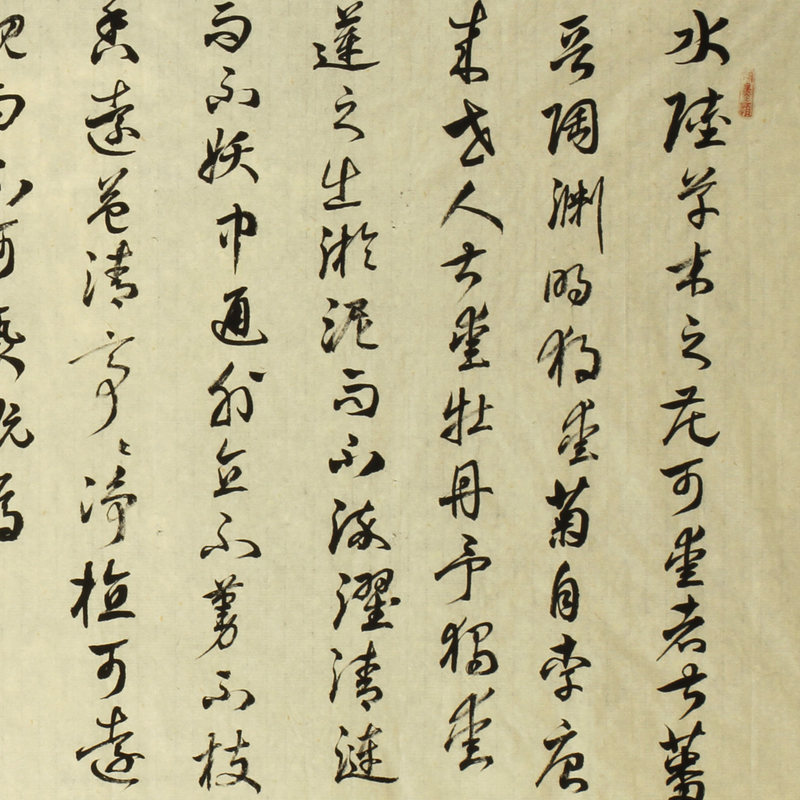 水陸草木之花可愛者甚蕃
晉陶淵明獨愛菊自李唐
來世人甚愛牡丹予獨愛
蓮之出淤泥而不染濯清漣
而不妖中通外直不蔓不枝
香遠益清亭々淨植可遠
觀而不可褻玩焉